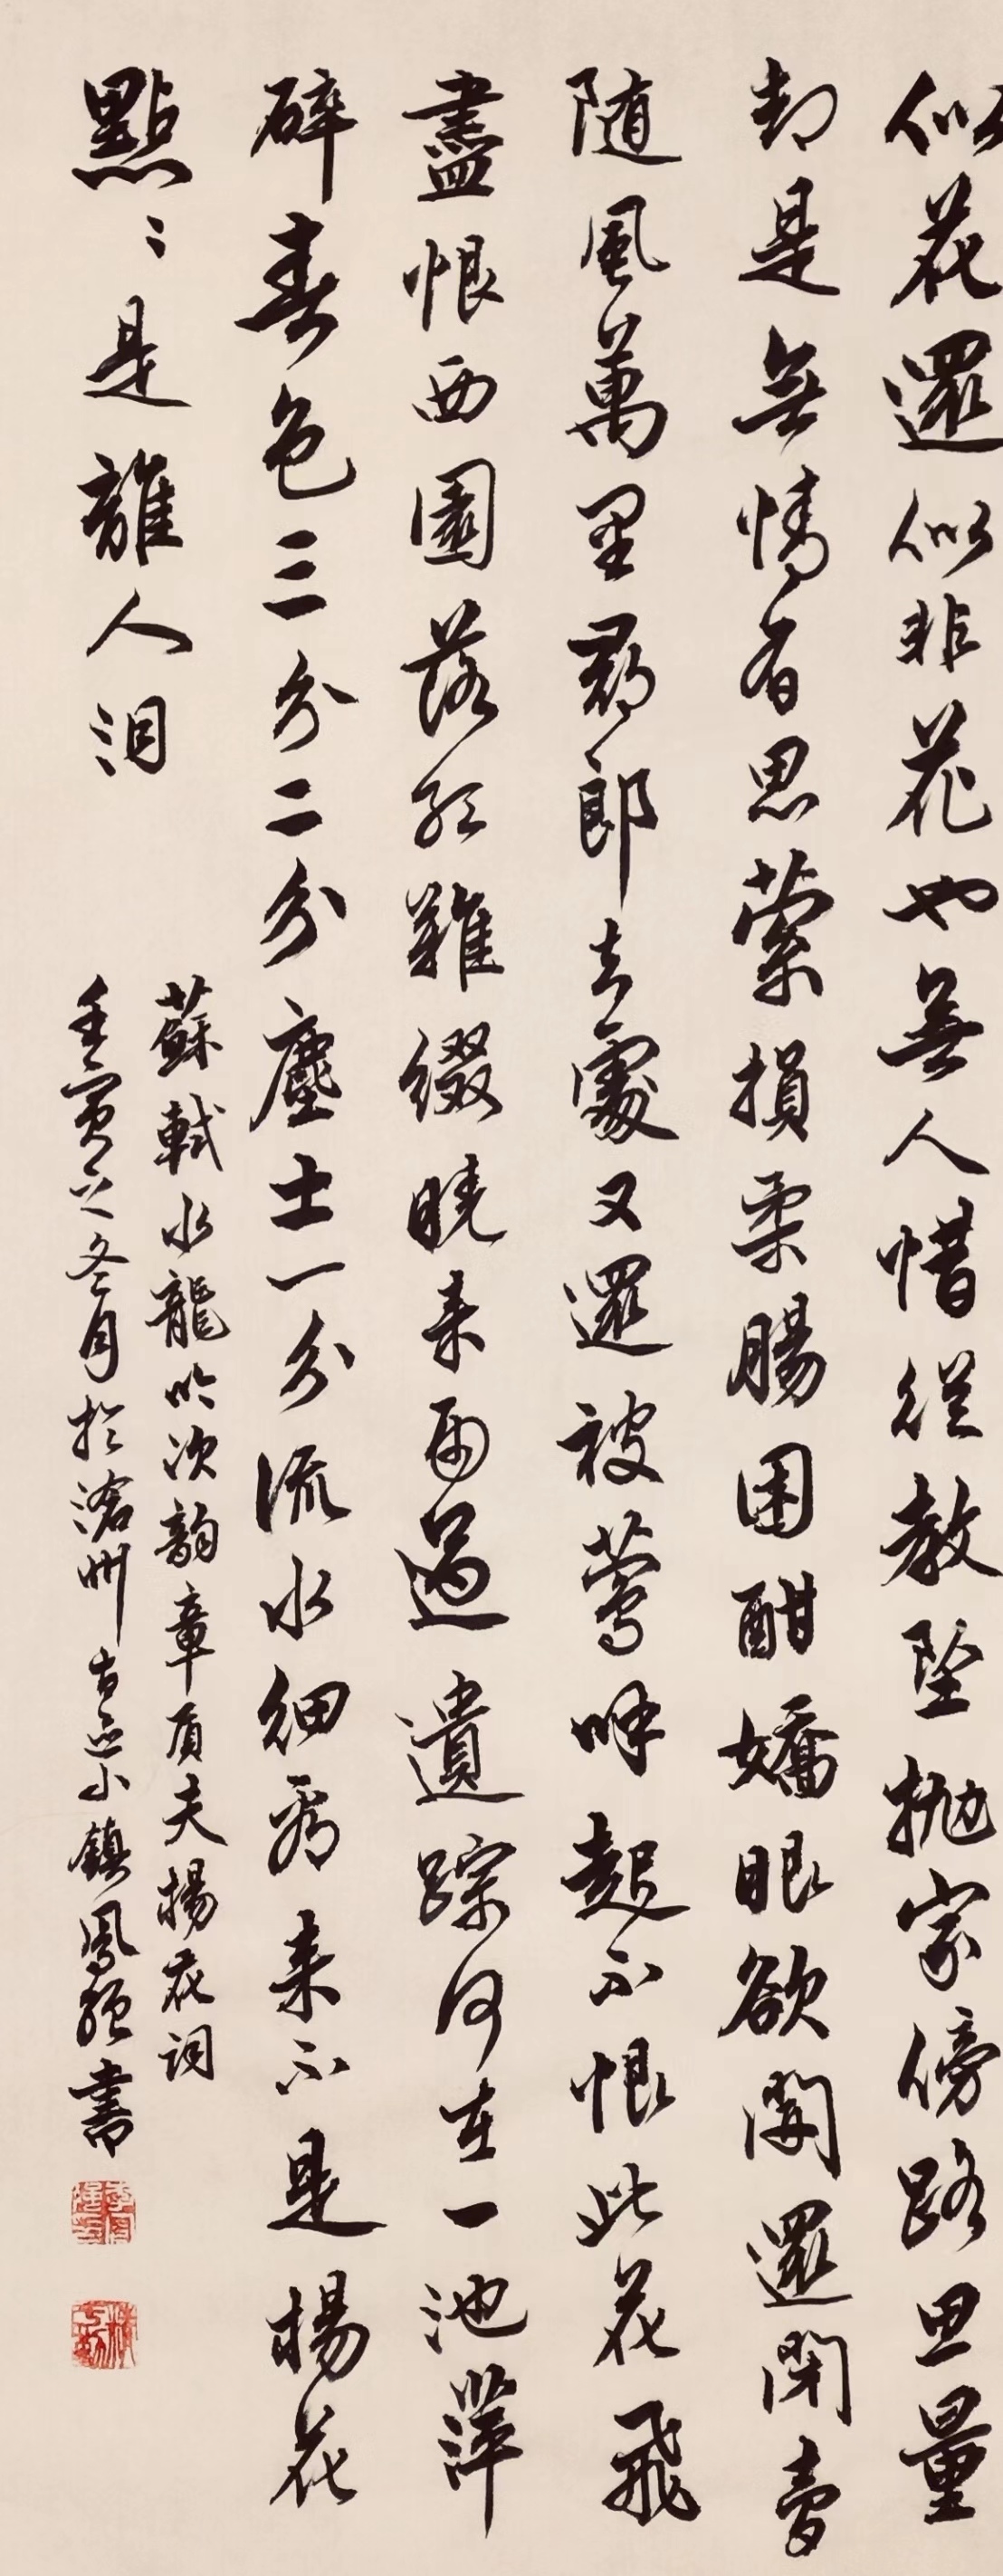 似花還似非花也無人惜從教墜抛家傍路思量
却是無情有思縈損柔腸困酣嬌眼欲開還閉夢
随風萬里尋郎去處又還被鶯呼起不恨此花飛
盡恨西園落紅難綴曉来雨過遺踪何在一池萍
碎春色三分二分塵土一分流水細看来不是楊花
點〻是離人泪
蘇軾水龍吟次韵章质夫楊花詞
壬寅之冬月於滄州古運小鎮鳳强書